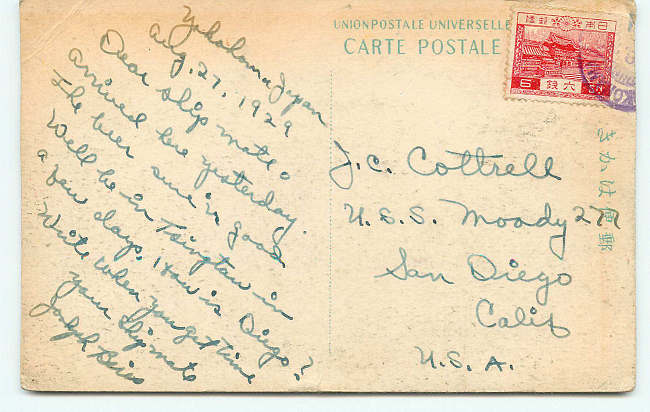 Yokohama Japan
Aug. 27, 1929
Dear Ship mate:
arrived here yesterday.
The beer sure is good
We'll be in Tsingtaw in
a few days. How is Diego?
Write when you get time
your shipmate
Joseph
UNION POSTALE UNIVERSELLE
CARTE POSTALE
日本帝國郵便
6 六銭 Sn
きかは便郵
J.C. Cottrell
U.S.S. Moody 277
San Diego
Calif
U.S.A.